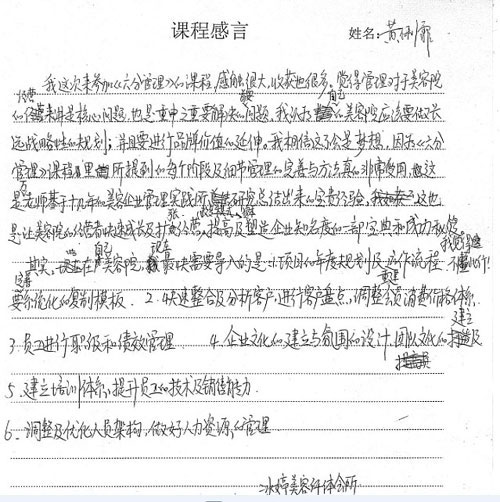 课程感言
姓名:黄
我这次来参加《六分管理》的课程,感触很大,收获也很多,觉得管理对于美容院
的经营来讲是核心问题,也是重中之重要解决的问题,我认为自己的美容院应该要做长
远战略性的规划;并且要进行品牌价值的延伸。我相信这不会是梦想,因为《六分
管理》课程里所提到的每个阶段及细节管理的完善与方法真的非常实用,这
是老师基于十几年的美容企业管理实践所研究总结出来的宝贵经验,这也
是让美容院的经营者快速成长及扩张经营,提高及塑造企业知名度的一部宝典和成功秘笈
其实,自己美容院,现在最快需要导入的是:1.项目的年度规划及工作流程,
要标准化的复制模板. 2. 快速整合及分析客户,进行客户盘点,调整会员消费价格体系.
3.员工进行职级和绩效管理 4.企业文化的建立与氛围的设计,团队文化的建立及
5.建立培训体系,提升员工的技术及销售能力.
6.调整及优化人员架构,做好人力资源的管理
冰婷美容纤体会所